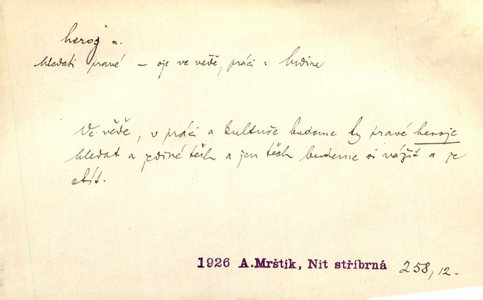 heroj m.
hledati pravé – oje ve vědě, práci : hrdina
Ve vědě, v práci a kultuře budeme ty pravé heroje
hledat a jediné těch a jen těch budeme si vážit a je
ctít.
1926 A. Mrštík, Nit stříbrná 258, 12.